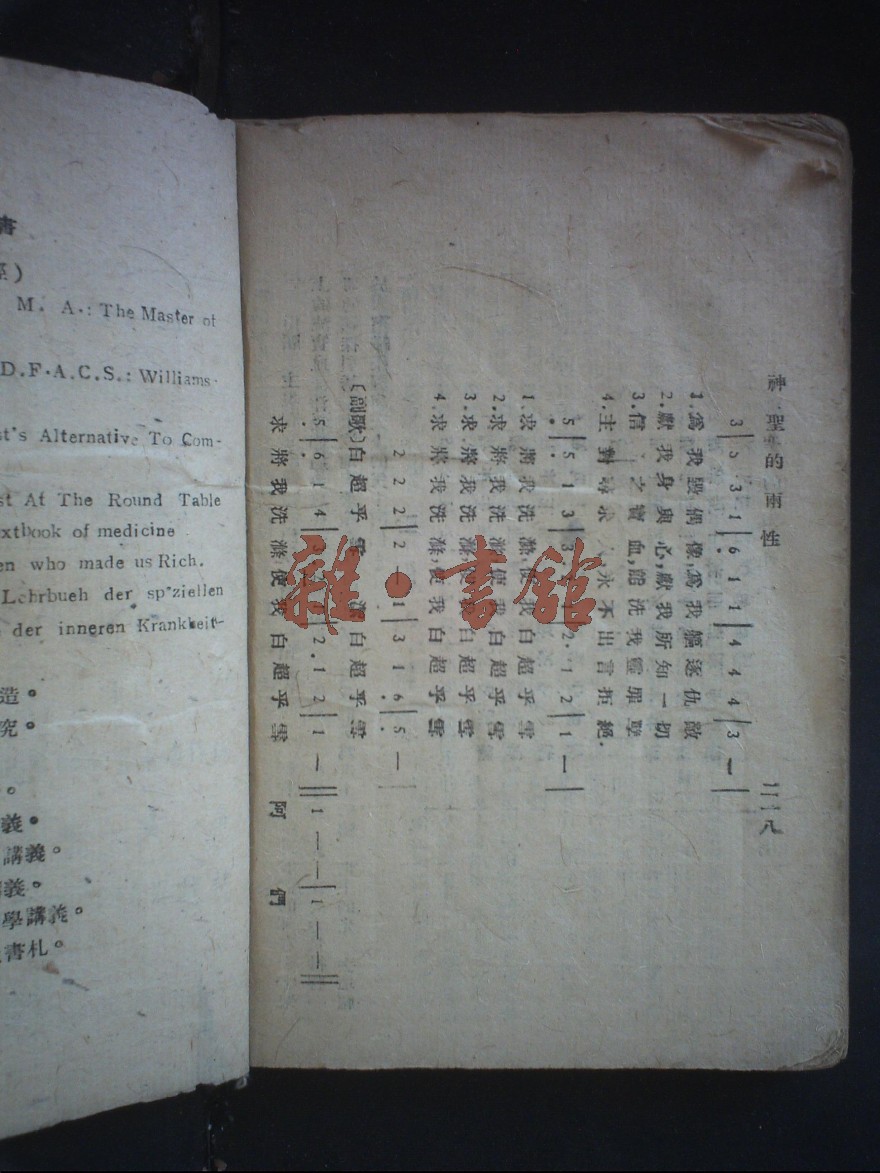 書
M. A.: The Master of
D.F.A.C.S.: Williams-
st's Alternative To Com-
st At The Round Table
extbook of medicine
en who made us Rich.
Lehrbueh der speziellen
der inneren Krankheit-
造。
究。
。
義。
講義。
義。
學講義。
書札。
神聖的兩性
二一八
3 | 5 3 1 | 6 1 1 | 4 4 4 | 3 — |
1.為我毀偶像,為我驅逐仇敵
2.獻我身與心,獻我所知一切
3.信 之寶血,能洗我靈罪孽
4.主對尋求 ,永不出言拒絕.
5 | 5 1 3 | 3 2 . 1 2 | 1 — |
1.求將我洗滌,使我白超乎雪
2.求將我洗滌,使我白超乎雪
3.求將我洗滌,使我白超乎雪
4.求將我洗滌,使我白超乎雪
2 2 2 | 2 — 1 | 3 1 6 | 5 — |
(副歌)白超乎雪 潔白超乎雪
5 | 6 1 4 | 3 | 2 . 1 2 | 1 — || 1 — — | 1 — — ||
求將我洗滌使我白超乎雪 阿們
雜·書館